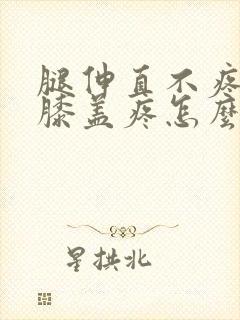 腿伸直不疼
膝盖疼怎麽
星拱北